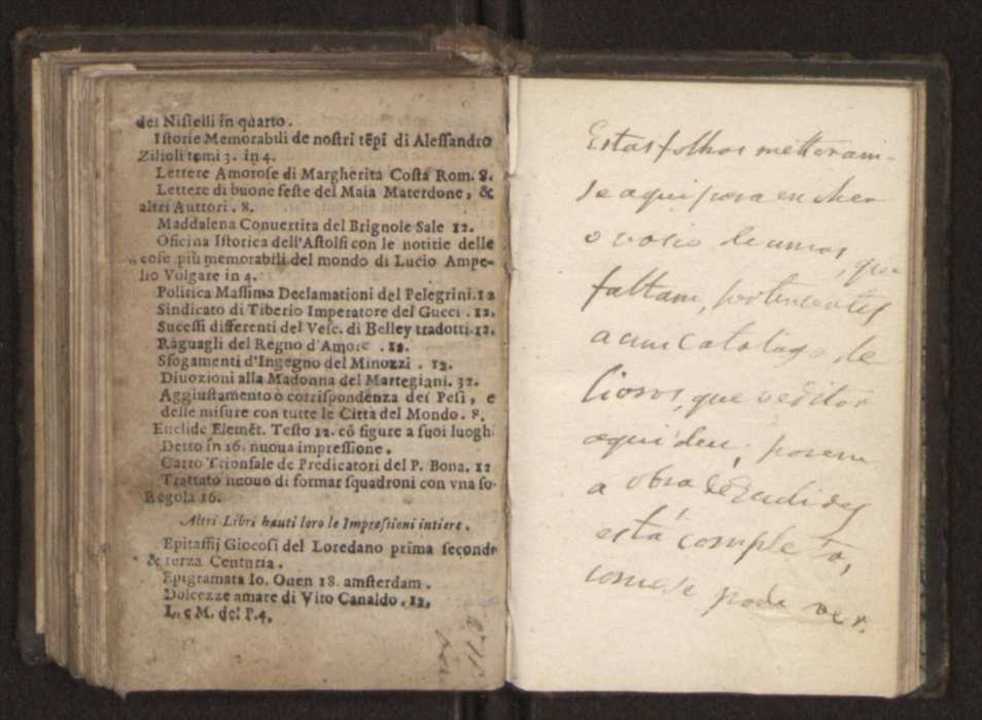 dei Nisielli in quarto.
Istorie Memorabili de nostri tēpi di Alessandro
Zilioli tomi 3. in 4.
Lettere Amorose di Margherita Costa Rom. 8.
Lettere di buone feste del Maia Materdone, &
altri Auttori. 8.
Maddalena Conuertita del Brignole Sale 12.
Oficina Istorica dell'Astolfi con le notitie delle
cose più memorabili del mondo di Lucio Ampe-
lio Volgare in 4.
Politica Massima Declamationi del Pelegrini. 12
Sindicato di Tiberio Imperatore del Gucci. 12.
Sucessi differenti del Vesc. di Belley tradotti. 12.
Raguagli del Regno d'Amore. 12.
Sfogamenti d'Ingegno del Minozzi. 12.
Diuozioni alla Madonna del Martegiani. 32.
Aggiustamento ò corrispondenza dei Pesi, e
delle misure con tutte le Città del Mondo. 8.
Euclide Elemēt. Testo 12. cō figure a suoi luoghi
Detto in 16. nuoua impressione.
Carro Trionfale de Predicatori del P. Bona. 12
Trattato nuouo di formar squadroni con vna so-
Regola 16.
Altri Libri hauti loro le Impressioni intiere.
Epitaffij Giocosi del Loredano prima seconde
& terza Centuria.
Epigramata Io. Ouen 18. amsterdam.
Dolcezze amare di Vito Canaldo. 12.
L. e M. del P. 4.
Estas folhas metteram-
se aqui para encher
o vasio de umas, que
faltam, pertencentes
a um Catalago de
Livros, que o editor
aqui deu; porem
a obra de Euclides
está completa,
como se pode ver.